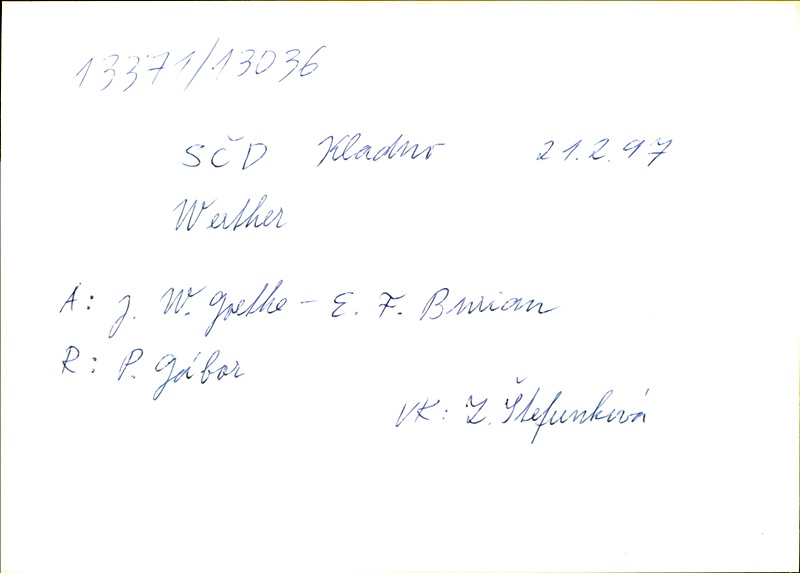 13371/13036
SČD Kladno 21.2.97
Werther
A: J. W. Goethe - E. F. Burian
R: P. Gábor
VK: Z. Štefunková